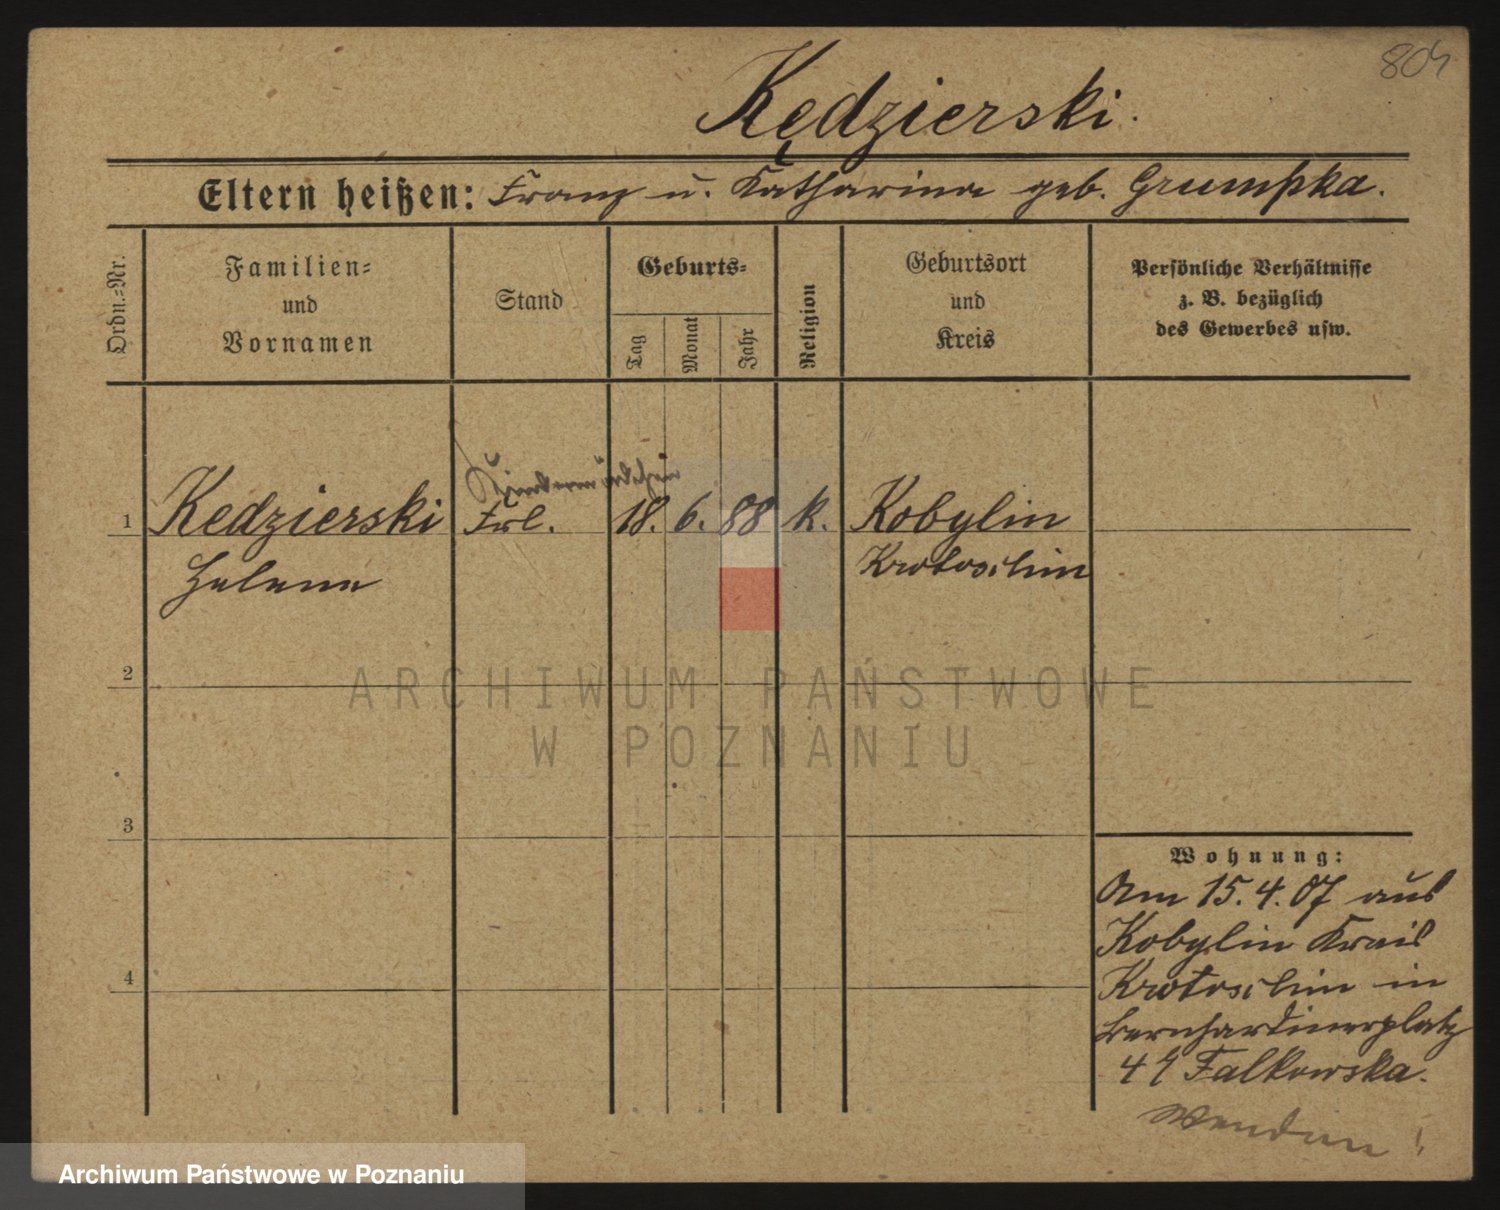 804
Kędzierski.
Eltern heißen: Franz u. Katharina geb. Grumpka.
Ordn.=Nr.
Familien=
und
Vornamen
Stand
Geburts=
Tag
Monat
Jahr
Religion
Geburtsort
und
Kreis
Persönliche Verhältnisse
z. B. bezüglich
des Gewerbes usw.
1 Kedzierski Frl. 18. 6. 88 k. Kobylin
Helene Krotoschin
2
ARCHIWUM PAŃSTWOWE
W POZNANIU
3
4
Wohnung:
Am 15.4.07 aus
Kobylin Kreis
Krotoschin in
Bernhardinerplatz
4 Falkowska.
Wenden!
Archiwum Państwowe w Poznaniu